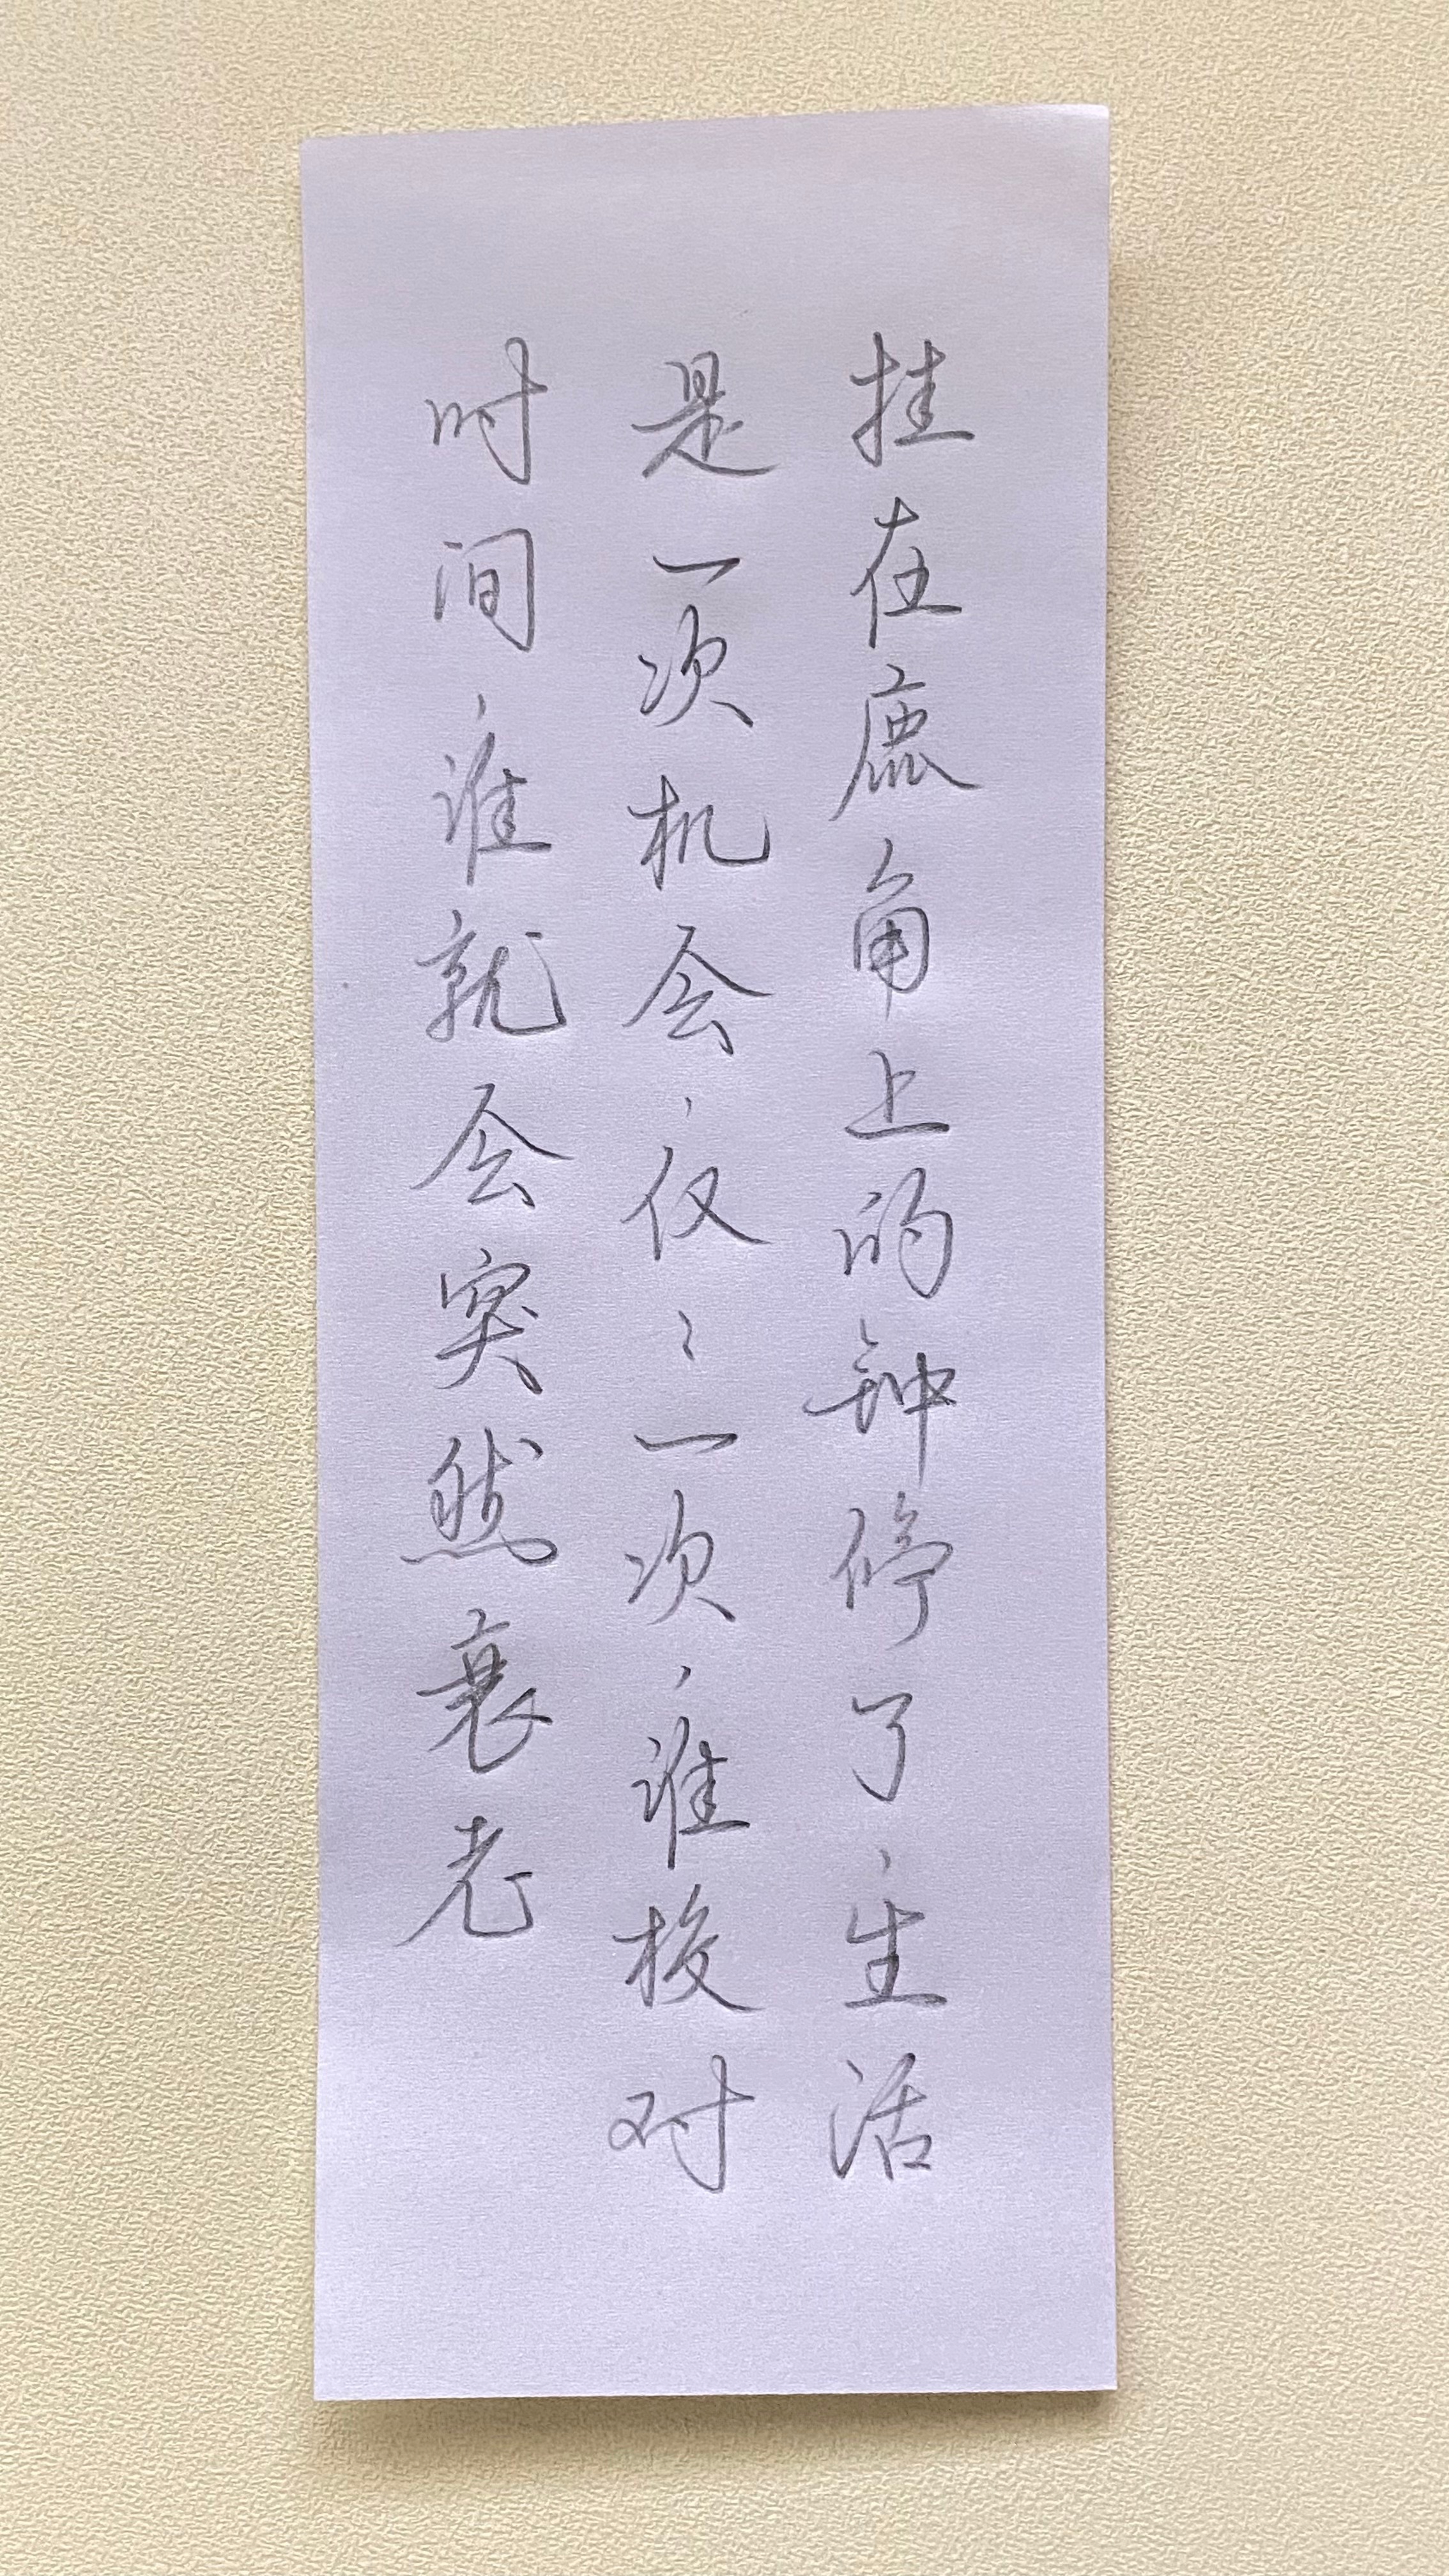 挂在鹿角上的钟停了，生活
是一次机会，仅々一次，谁校对
时间，谁就会突然衰老